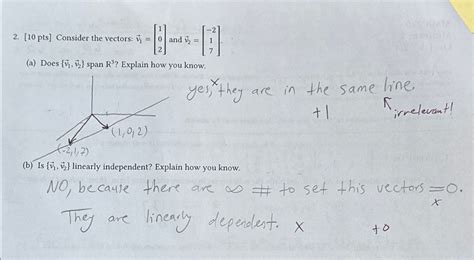 2. [10 pts] Consider the vectors: v⃗₁ = [1 0 2] and v⃗₂ = [-2 1 7].
(a) Does {v⃗₁, v⃗₂} span R³? Explain how you know.
yes, x they are in the same line.
+1 irrelevant!
(1,0,2)
(-2,1,7)
(b) Is {v⃗₁, v⃗₂} linearly independent? Explain how you know.
NO, because there are ∞ # to set this vectors = 0.
x
They are linearly dependent. x +0